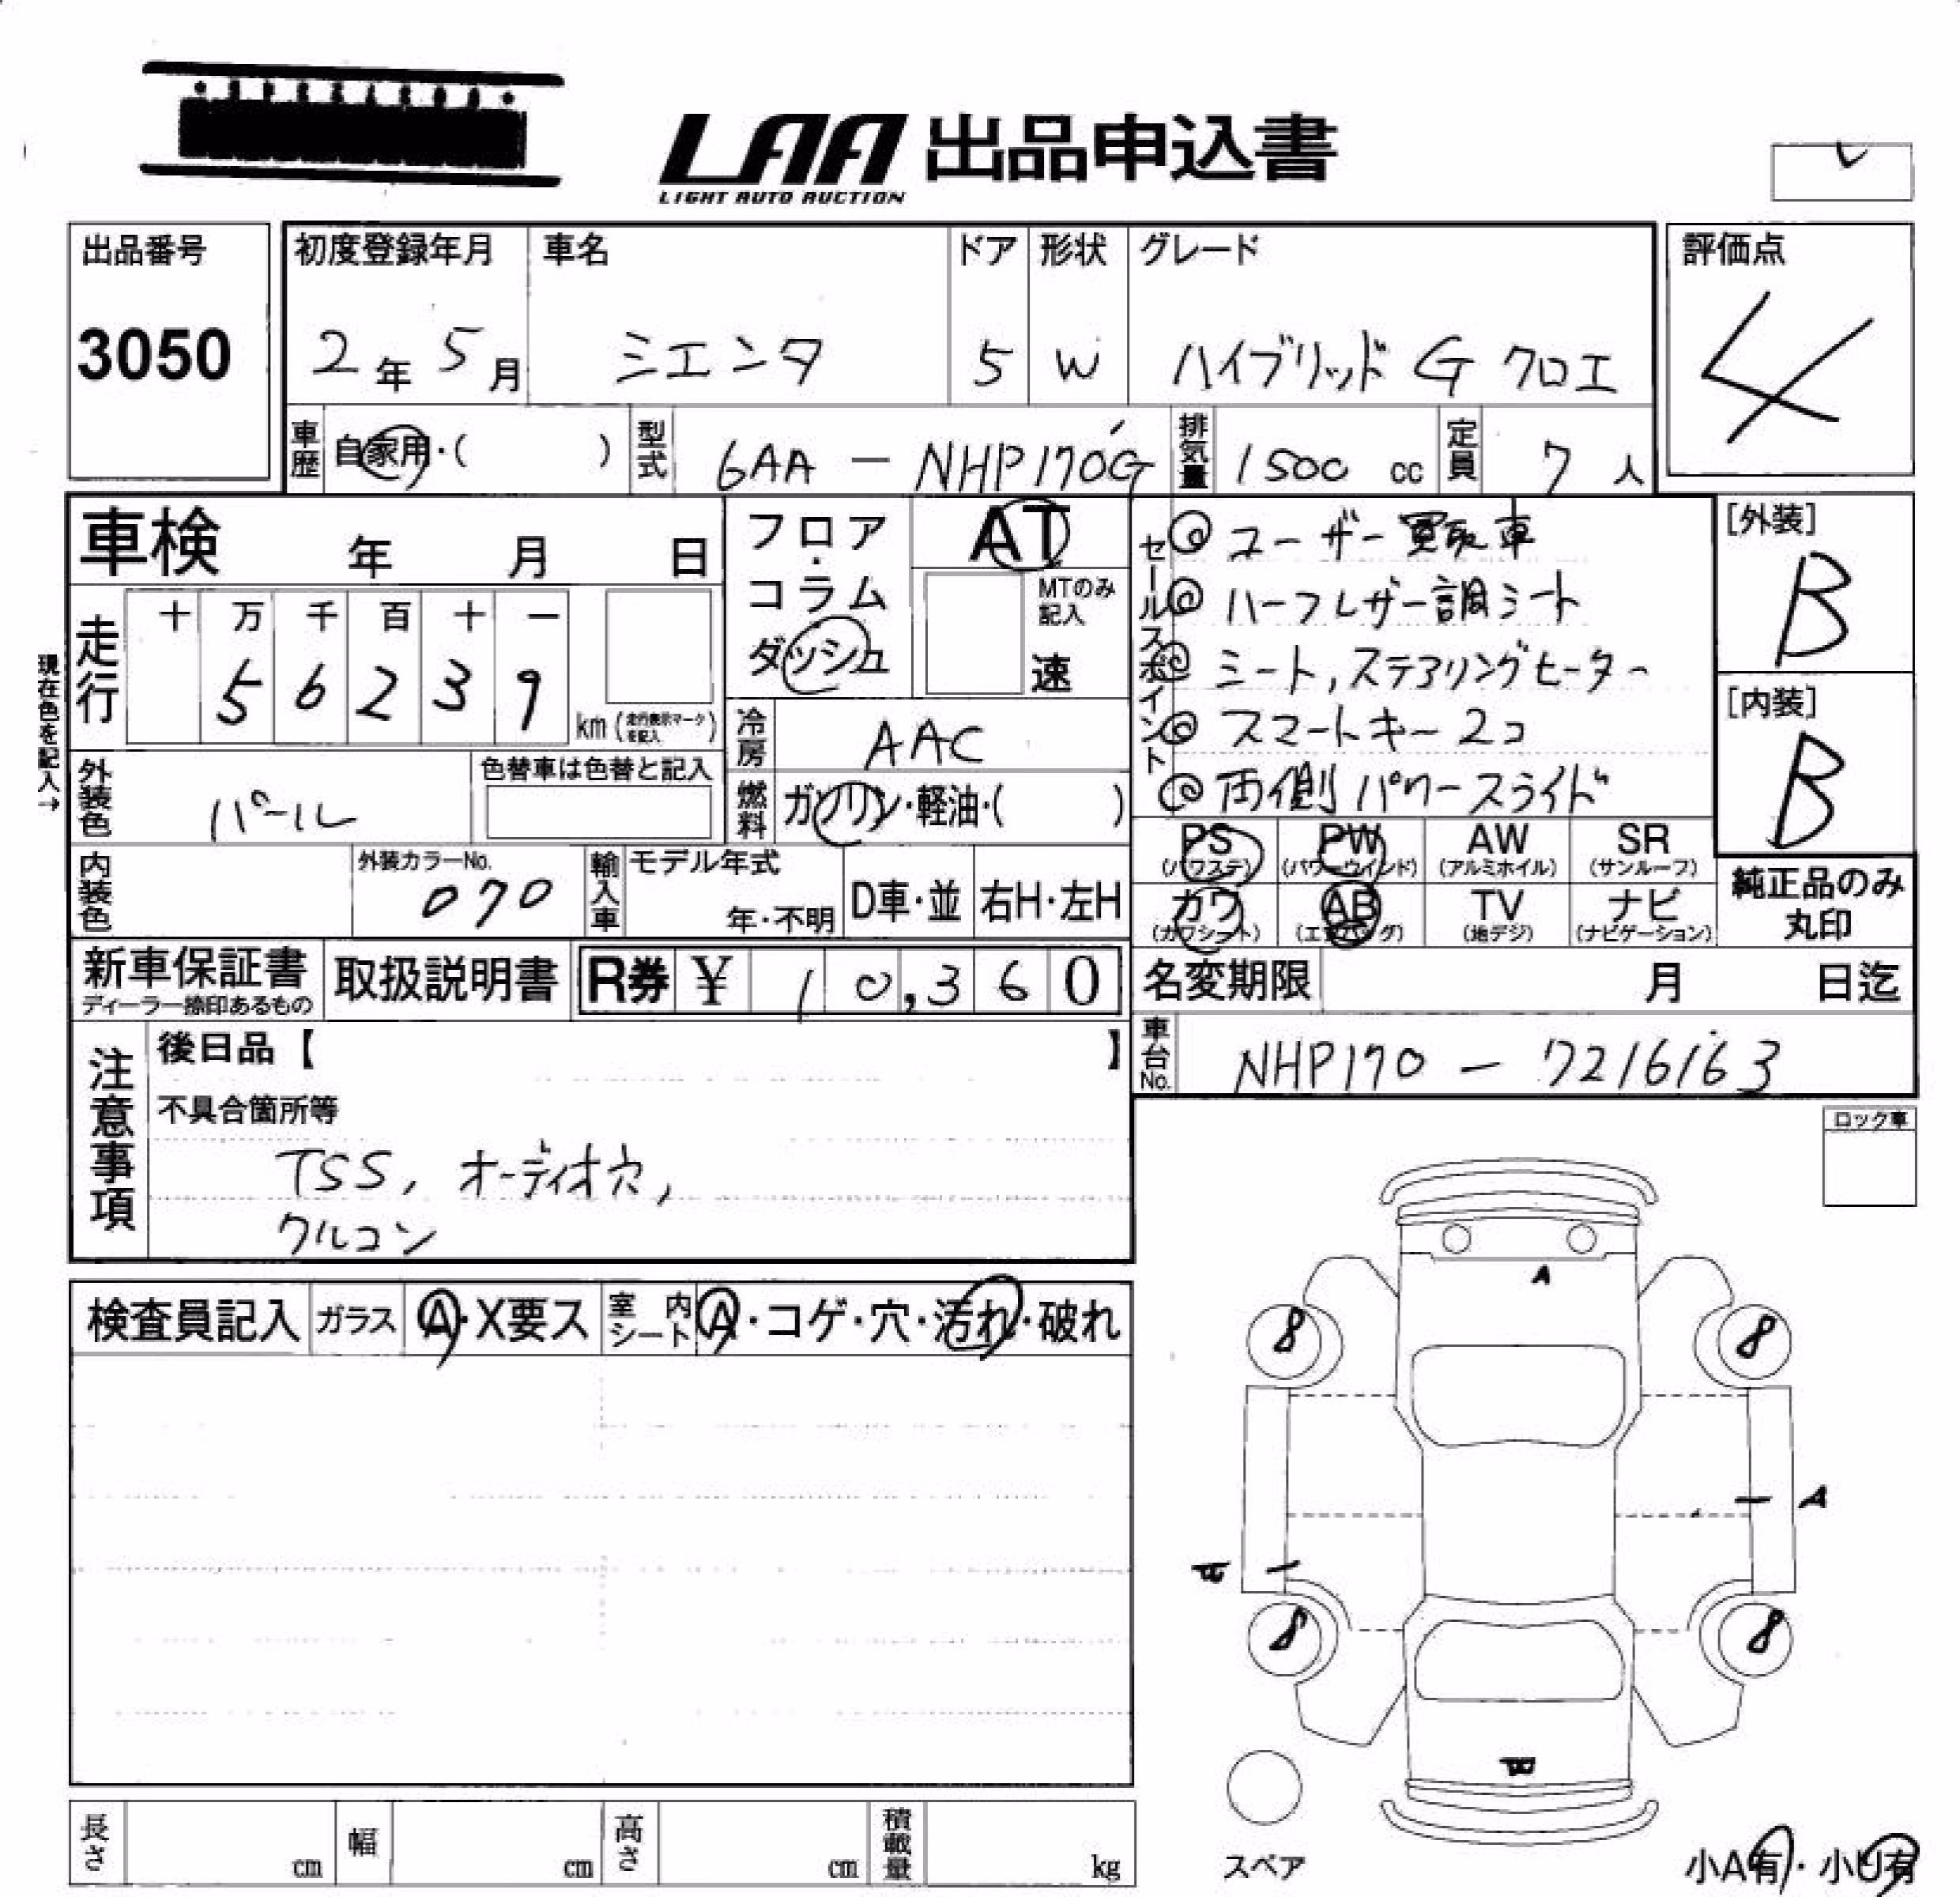 LAA 出品申込書
LIGHT AUTO AUCTION
出品番号
3050
初度登録年月 車名 ドア 形状 グレード
2年 5月 シエンタ 5 W ハイブリッド G クロエ
評価点
4
車歴 自家用・( ) 型式 6AA - NHP170G 排気量 1500 cc 定員 7 人
車検 年 月 日
フロア・コラム ダッシュ
AT
MTのみ記入
速
現在色を記入→
走行 十 万 千 百 十 一
5 6 2 3 9 km (走行表示マークを記入)
冷房 AAC
外装色 パール 色替車は色替と記入
燃料 ガソリン・軽油・( )
内装色 外装カラーNo. 070
輸入車 モデル年式 年・不明 D車・並 右H・左H
セールスポイント
◎ ユーザー買取車
◎ ハーフレザー調シート
◎ シート,ステアリングヒーター
◎ スマートキー 2コ
◎ 両側パワースライド
[外装]
B
[内装]
B
PS (パワステ) PW (パワーウインド) AW (アルミホイル) SR (サンルーフ)
カワ (カワシート) AB (エアバッグ) TV (地デジ) ナビ (ナビゲーション)
純正品のみ丸印
新車保証書 ディーラー捺印あるもの 取扱説明書 R券 ¥ 10,360
名変期限 月 日迄
車台No. NHP170 - 7216163
注意事項
後日品【 】
不具合箇所等
TSS, オーディオ穴,
クルコン
ロック車
検査員記入 ガラス A・X要ス 室内シート A・コゲ・穴・汚れ・破れ
A
8 8
A
A
8 8
B
スペア
小A有・小U有
長さ cm 幅 cm 高さ cm 積載量 kg